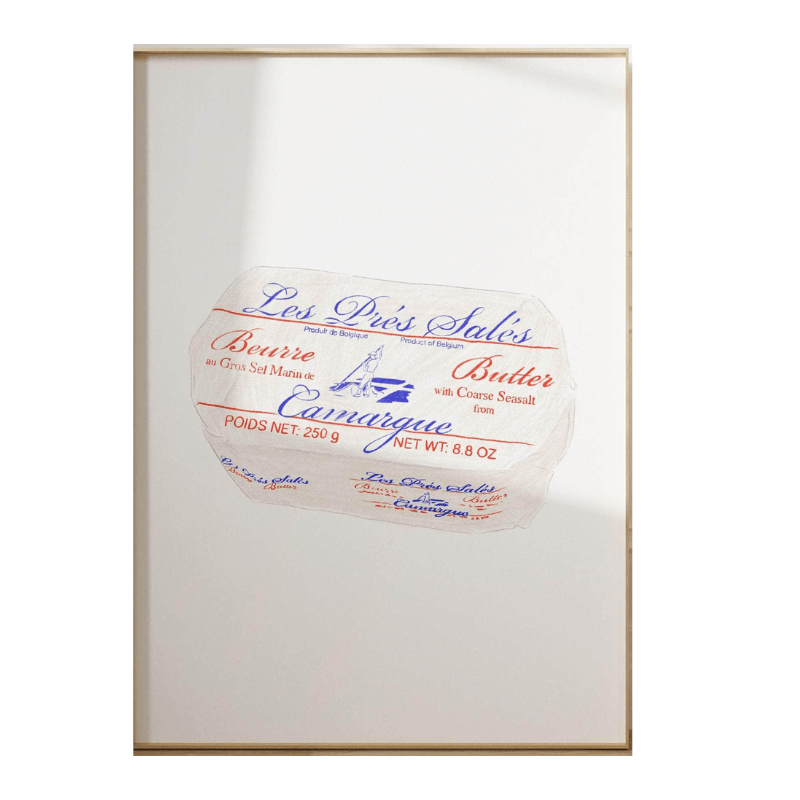 Les Prés Salés
Produit de Belgique
Product of Belgium
Beurre
au Gros Sel Marin de
Butter
with Coarse Seasalt
from
Camargue
POIDS NET: 250 g
NET WT: 8.8 OZ
Les Prés Salés
Beurre
Butter
Les Prés Salés
Beurre
Butter
Camargue